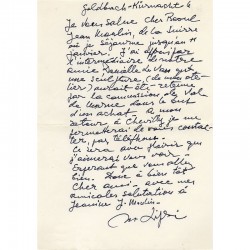 Goldbach-Küsnacht 6
Je vous salue cher Raoul
Jean Moulin, de la Suisse
où je séjourne jusqu'au 11
janvier! J'ai appris par
l'intermédiaire de notre
amie Danielle de Vas que
une sculpture, (de mon ate-
lier) devrait être rete-
nue par la commission du Val
de Marne dans le but
d'un achat. A mon
retour à Chevilly je me
permettrai de vous contac-
ter, par téléphone.
Ce sera avec plaisir que
j'aimerais vous voir.
Espérant que vous allez
bien. Donc à bien tôt
cher ami, avec mes
amicales salutations à
Jeanine J. Moulin.